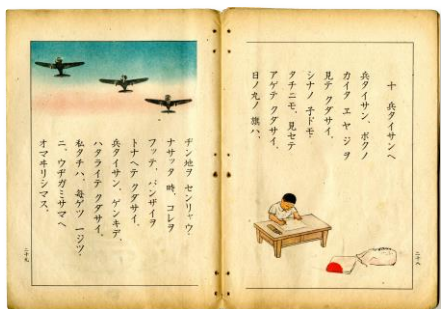 十 兵タイサンヘ
兵タイサン、ボクノ
カイタ エ ヤ ジ ヲ
見テ クダサイ。
シナノ 子ドモ
タチニモ、見セテ
アゲテ クダサイ。
日ノ丸ノ 旗ハ、
二十八
ヂン地ヲ センリャウ
ナサッタ 時、コレヲ
フッテ、バンザイヲ
トナヘテ クダサイ。
兵タイサン、ゲンキデ、
ハタライテ クダサイ。
私タチハ、毎ゲツ 一ジツ
ニ、ウヂガミサマヘ
オマヰリシマス。
二十九